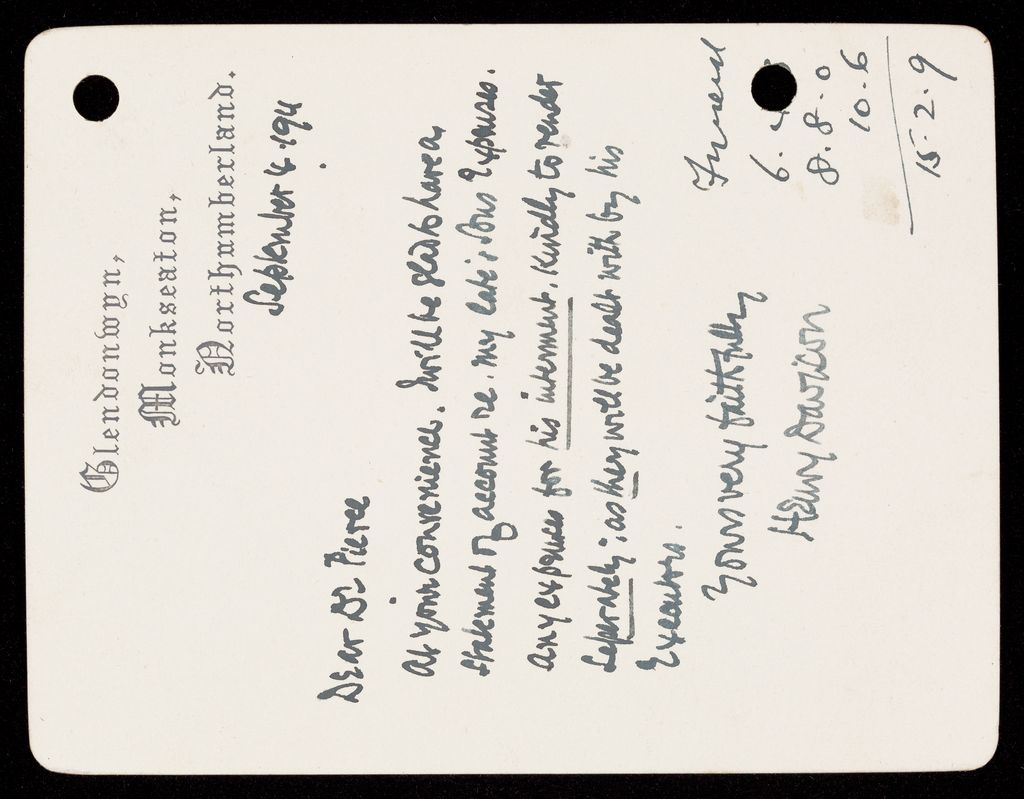 Glendonwyn,
Monkseaton,
Northumberland.
September 4. 1911
Dear Dr Pierce
At your convenience. I will be glad to have a,
statement of account re. my late; sons Expenses.
any expenses for his interment. Kindly to render
separately; as they will be dealt with by his
Executors.
Yours very faithfully
Henry Davison
Funeral
6. 4.
8. 8. 0
10. 6
15. 2. 9